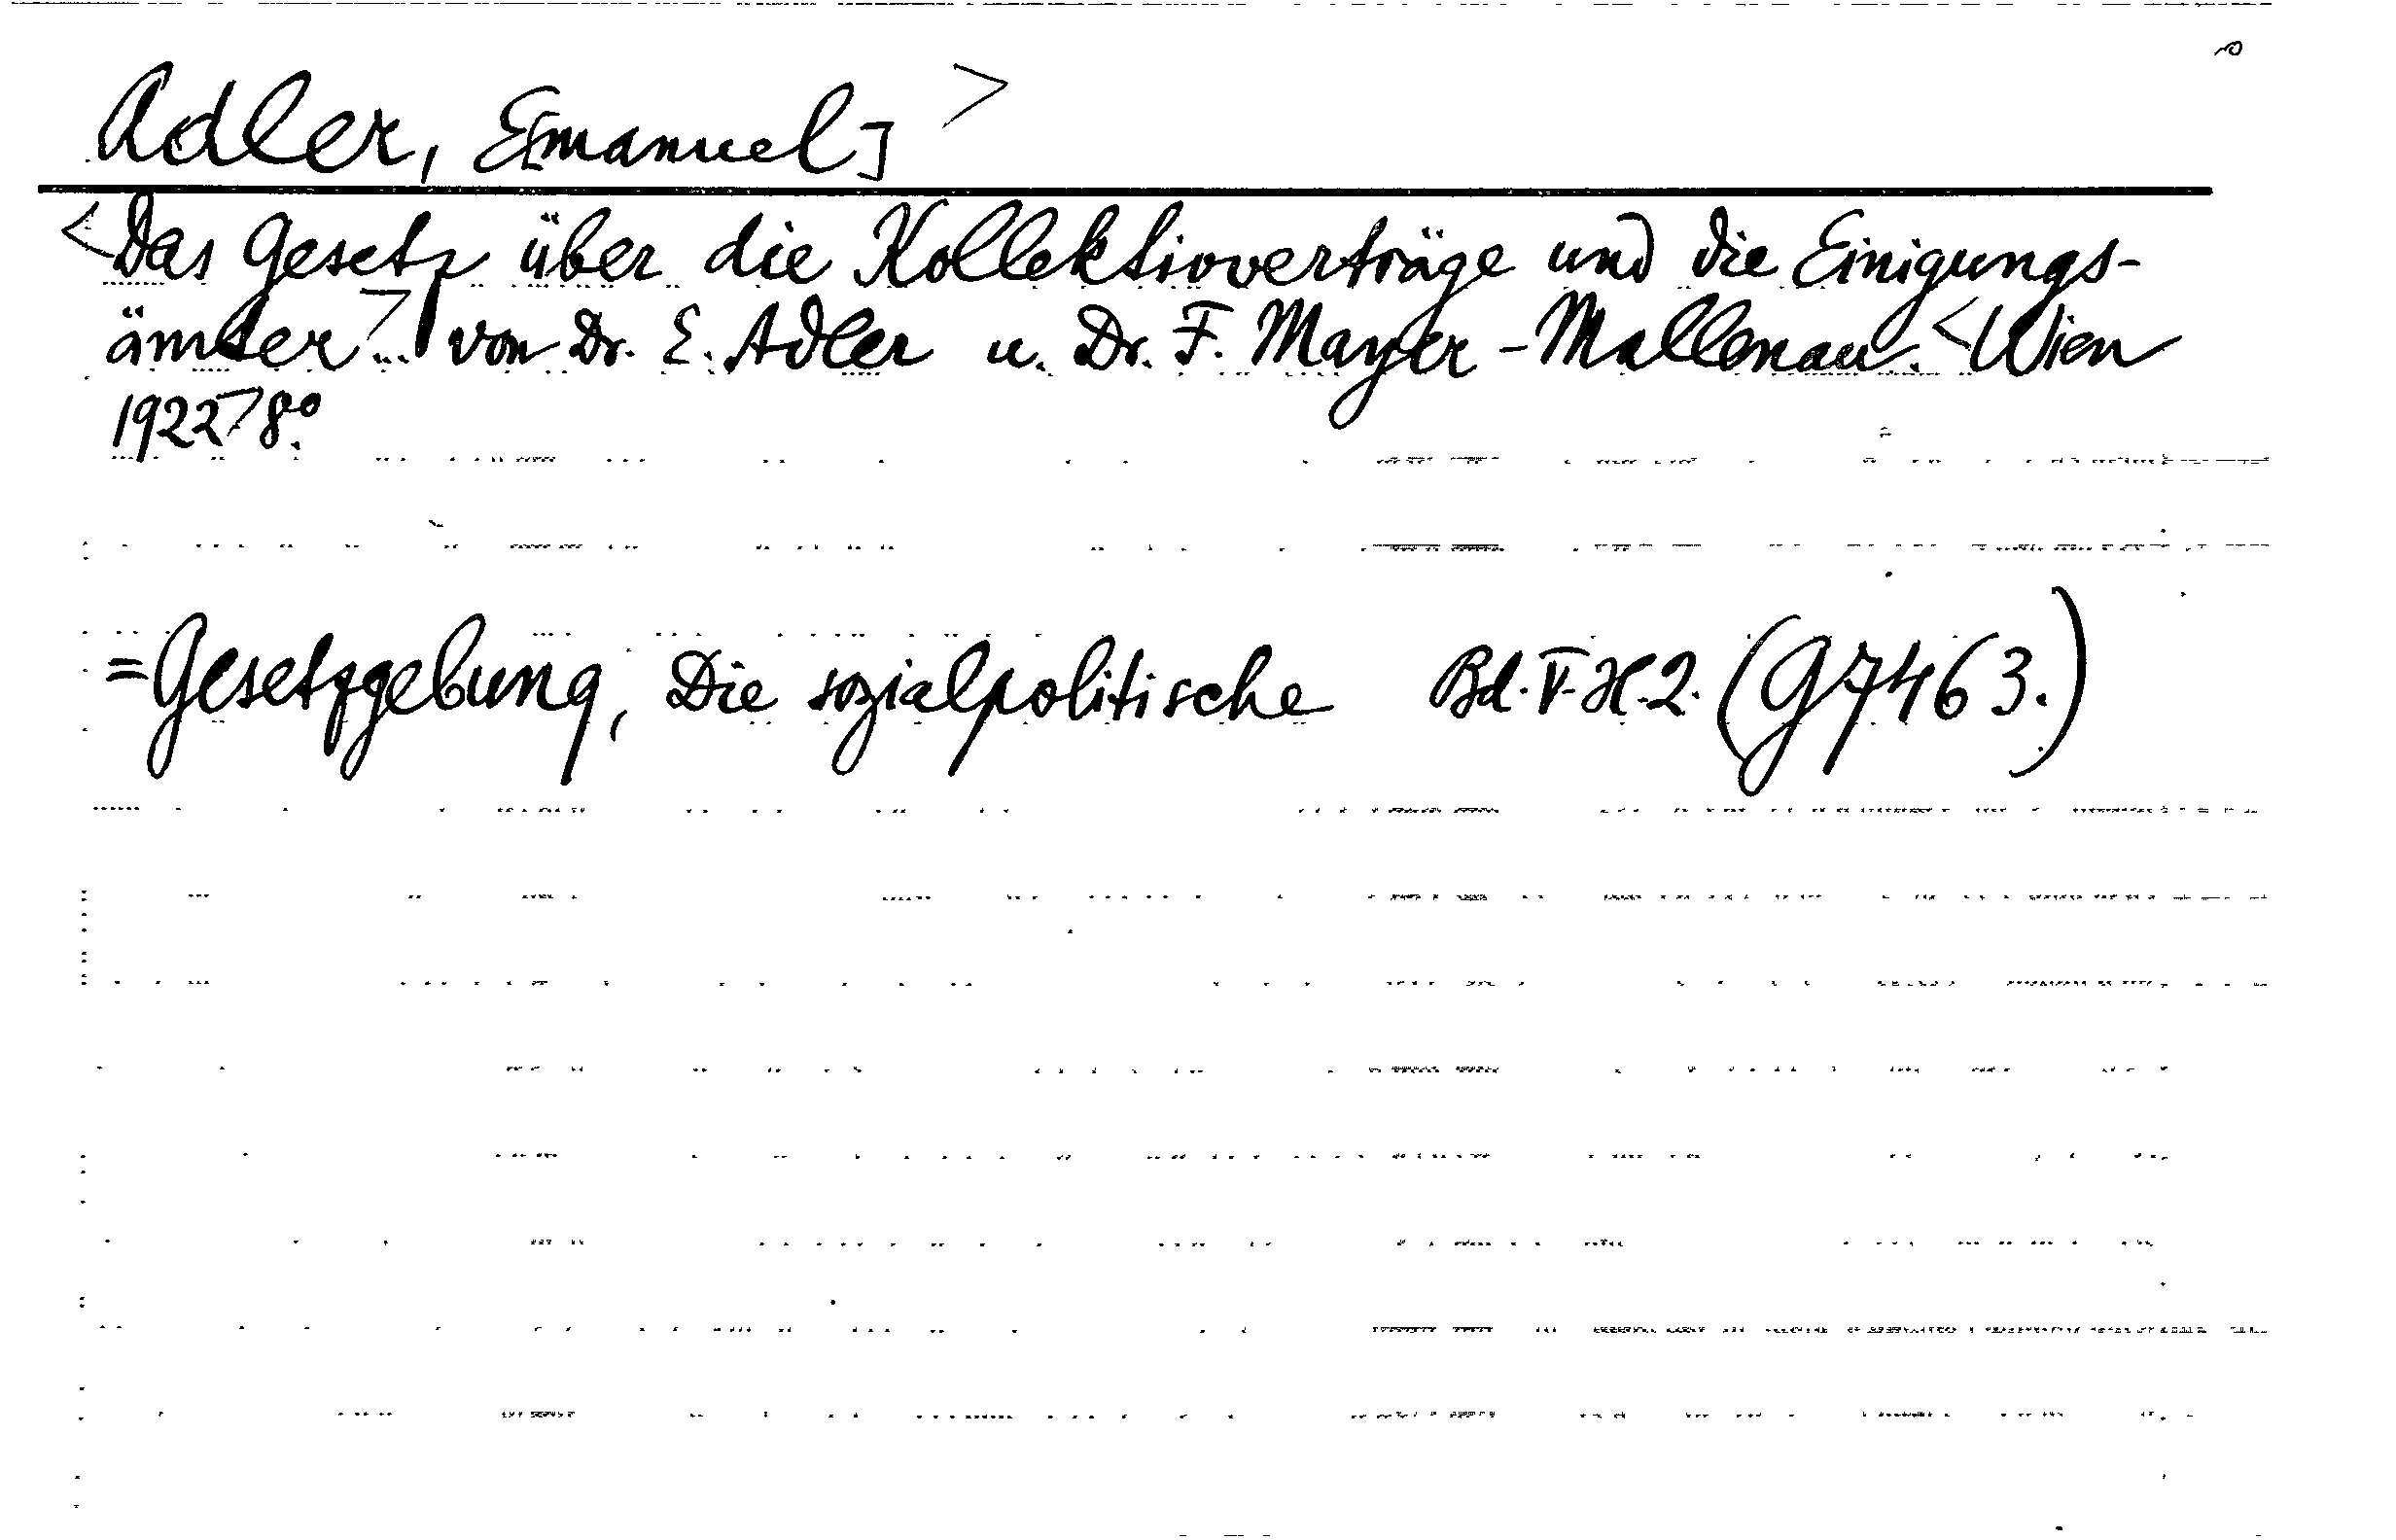 Adler, E[manuel] >
<Das Gesetz über die Kollektivverträge und die Einigungs-
ämter> von Dr. E. Adler u. Dr. F. Mayer-Mallenau. <Wien
1922> 8°.
=Gesetzgebung, Die sozialpolitische Bd. V. H. 2. (G7463.)